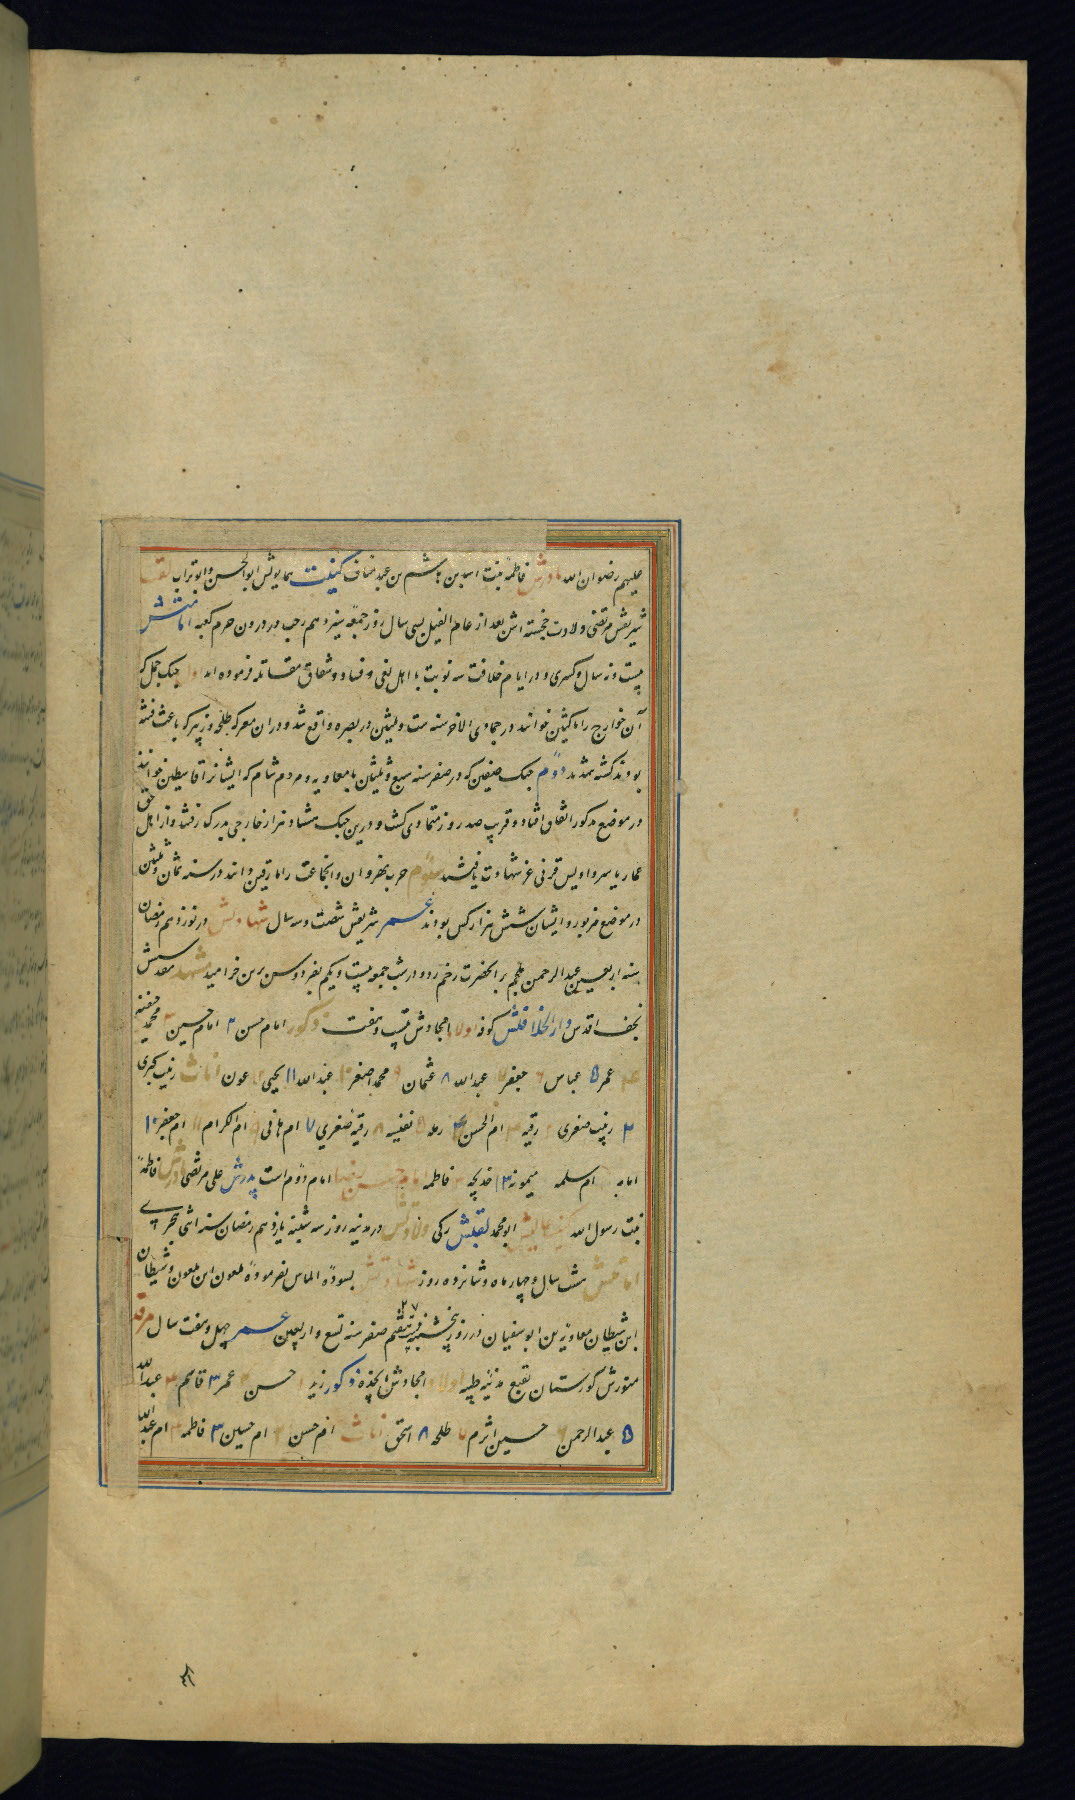 علیهم رضوان الله مادرش فاطمهٔ بنت اسد بن هاشم بن عبد مناف کنیت همایونش ابوالحسن و ابوتراب لقب
شریفش مرتضی ولادت خجسته اش بعد از عام الفیل بسی سال روز جمعه سیزدهم رجب در درون حرم کعبه امامتش
بیست و نه سال و کسری و در ایام خلافت سه نوبت با اهل بغی و فساد و شقاق مقاتله فرموده اند اول جنک جمل که
آن خوارج را ناکثین خوانند در جمادی الاخر سنه ست و ثلثین در بصره واقع شد و دران معرکه طلحه و زبیر که باعث فتنه
بودند کشته شدند دوم جنک صفین که در صفر سنه سبع و ثلثین با معاویه و مردم شام که ایشانرا قاسطین خوانند
در موضع مذکور اتفاق افتاد و قریب صد روز متمادی کشت و درین جنک هشتاد هزار خارجی بدرک رفتند و از اهل حق
عمار یاسر و اویس قرنی عز شهادت یافتند سوم حرب نهروان و انجماعت را مارقین دانند در سنه ثمان و ثلثین
در موضع مزبور و ایشان شش هزار کس بودند عمر شریفش شصت و سه سال شهادتش در نوزدهم رمضان
سنه اربعین عبدالرحمن ملجم بر انحضرت زخم زد و در شب جمعه بیست و یکم بفردوس برین خرامید مشهد مقدسش
نجف اقدس دارالخلافتش کوفه اولاد امجادش بیست و هفت ذکور امام حسن ۲ امام حسین ۳ محمد حنفیه
۴ عمر ۵ عباس ۶ جعفر ۷ عبدالله ۸ عثمان ۹ محمد اصغر ۱۰ عبدالله ۱۱ یحیی ۱۲ عون اناث زینب کبری
۲ زینب صغری ۳ رقیه ۴ ام الحسن رمله نفیسه رقیه صغری ۷ ام هانی ام الکرام ام جعفر
امامه ام سلمه میمونه خدیجه فاطمه امام حسن امام دوم است پدرش علی مرتضی مادرش فاطمه
بنت رسول الله کنیت ابو محمد لقبش زکی ولادتش در مدینه روز سه شنبه پانزدهم رمضان سنه اثنی هجری
امامتش شش سال و چهار ماه و شانزده روز شهادتش بسودهٔ الماس بفرمودهٔ ملعون ابن ملعون و شیطان
ابن شیطان معاویه بن ابو سفیان در روز پنجشنبه ۲۷ صفر سنه تسع و اربعین عمر چهل و هفت سال مرقد
منورش کورستان بقیع مدینه طیبه اولاد امجادش ذکور زید حسن عمر ۳ قاسم ۴ عبدالله
۵ عبدالرحمن ۶ حسین اثرم ۷ طلحه ۸ اسحق اناث ام حسن ام حسین ۳ فاطمه ام عبدالله